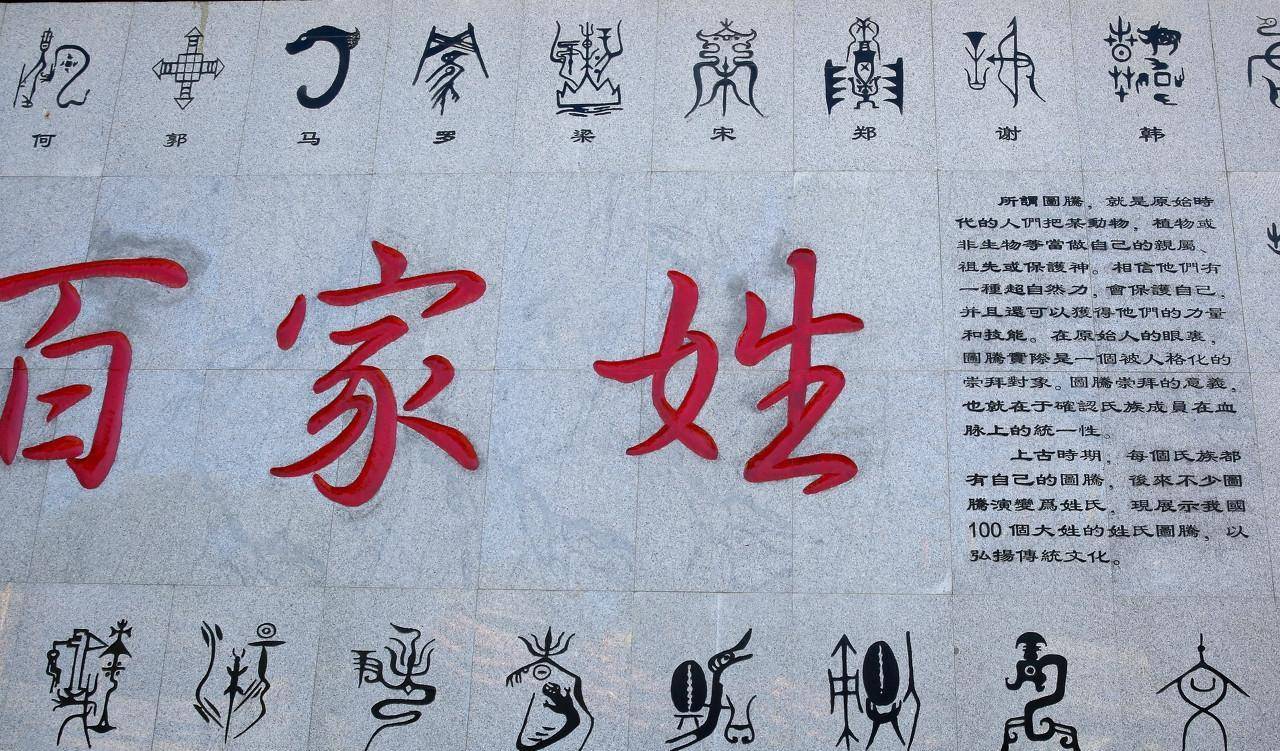 何 郭 马 罗 梁 宋 郑 谢 韩
百家姓
所謂圖騰，就是原始時
代的人們把某動物，植物或
非生物等當做自己的親屬、
祖先或保護神。相信他們有
一種超自然力，會保護自己，
并且還可以獲得他們的力量
和技能。在原始人的眼裏，
圖騰實際是一個被人格化的
崇拜對象。圖騰崇拜的意義，
也就在于確認氏族成員在血
脉上的統一性。
上古時期，每個氏族都
有自己的圖騰，後來不少圖
騰演變爲姓氏，現展示我國
100個大姓的姓氏圖騰，以
弘揚傳統文化。